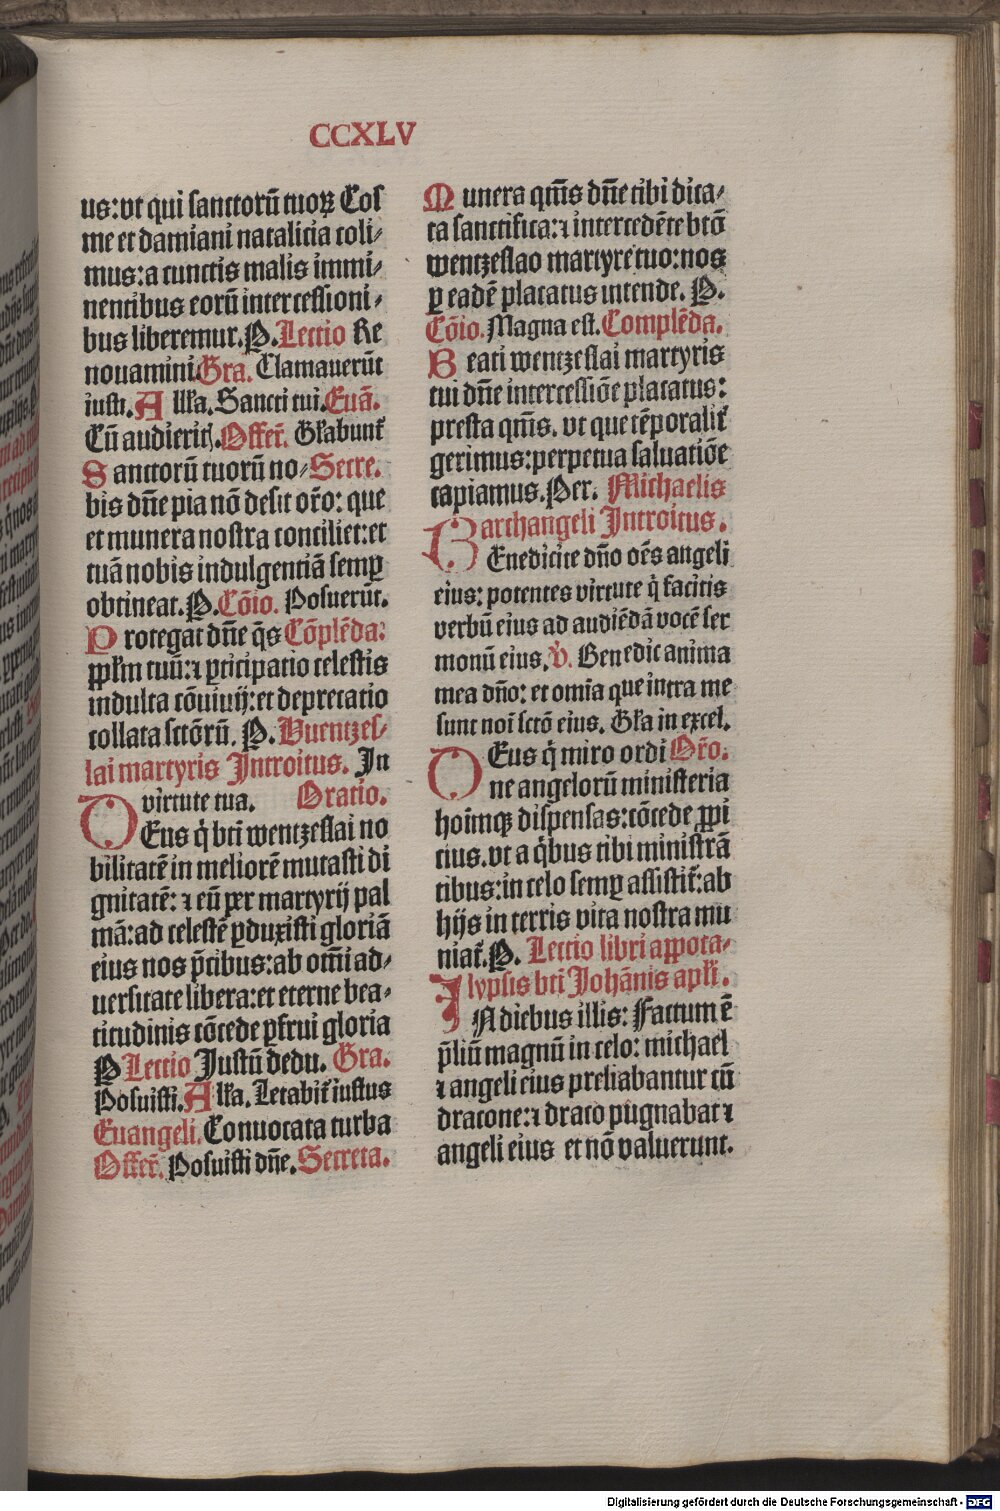 CCXLV
us: vt qui sanctorū tuoꝝ Cos
me et damiani natalicia coli/
mus: a cunctis malis immi/
nentibus eorū intercessioni/
bus liberemur. P. Lectio Re
nouamini. Gra. Clamauerūt
iusti. Alľa. Sancti tui. Euā.
Cū audieritꝭ. Offeř. Gľabunť
Sanctorū tuorū no/ Secre.
bis dn̄e pia nō desit oř̄o: que
et munera nostra conciliet: et
tuā nobis indulgentiā semꝑ
obtineat. P. Cōio. Posuerūt.
Protegat dn̄e q̄s Cōplēda:
ꝓpľm tuū: ⁊ ꝑticipatio celestis
indulta cōuiuij: et deprecatio
collata sctōrū. P. Wentzes/
lai martyris Introitus. In
virtute tua. Oratio.
DEus q̇ btī wentzeslai no
bilitatē in meliorē mutasti di
gnitatē: ⁊ eū ꝑ martyrij pal
mā: ad celestē ꝑduxisti gloriā
eius nos p̄cibus: ab omī ad/
uersitate libera: et eterne bea/
titudinis cōcede ꝑfrui gloria
P Lectio Justū dedu. Gra.
Posuisti. Alľa. Letabiť iustus
Euangeli. Conuocata turba
Offeř. Posuisti dn̄e. Secreta.
Munera qm̄s dn̄e tibi dica/
ta sanctifica: ⁊ intercedēte btō
wentzeslao martyre tuo: nos
ꝑ eadē placatus intende. P.
Cōio. Magna est. Complēda.
Beati wentzeslai martyris
tui dn̄e intercessiōe placatus:
presta qm̄s. vt que tēporaliť
gerimus: perpetua saluatiōe
capiamus. Per. Michaelis
archangeli Introitus.
BEnedicite dn̄o oēs angeli
eius: potentes virtute q̇ facitis
verbū eius ad audiēdā vocē ser
monū eius. v̇. Benedic anima
mea dn̄o: et omīa que intra me
sunt noī sctō eius. Gľa in excel.
DEus q̇ miro ordi Oř̄o.
ne angelorū ministeria
hoīmqꝫ dispensas: cōcede ꝓpi
cius. vt a q̇bus tibi ministrā
tibus: in celo semꝑ assistiť: ab
hijs in terris vita nostra mu
niať. P. Lectio libri appoca/
lypsis btī Johānis apľi.
IN diebus illis: Factum ē
p̄liū magnū in celo: michael
⁊ angeli eius preliabantur cū
dracone: ⁊ draco pugnabat ⁊
angeli eius et nō valuerunt.
Digitalisierung gefördert durch die Deutsche Forschungsgemeinschaft - DFG